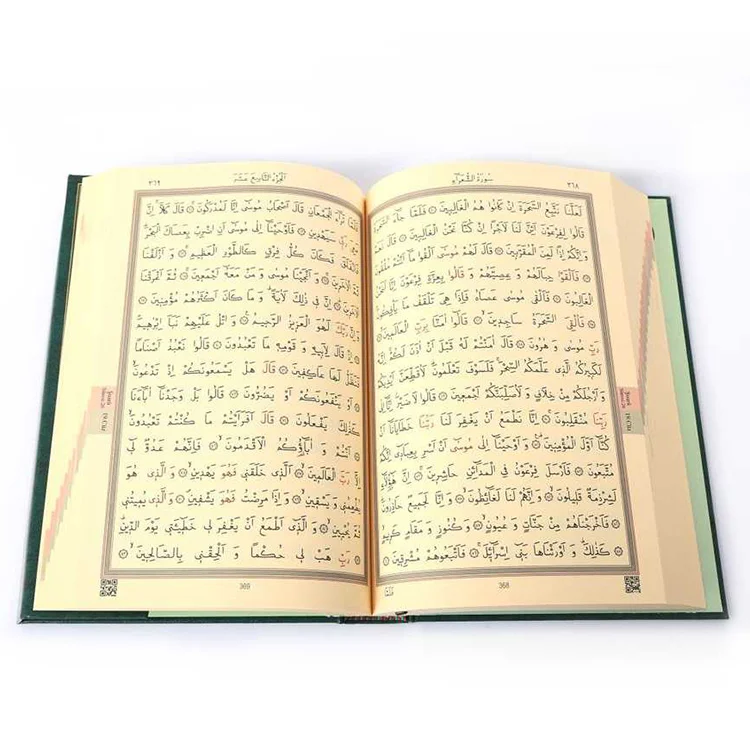 سُورَةُ الشُّعَرَٓاءِ ٣٦٨
لَعَلَّنَا نَتَّبِعُ السَّحَرَةَ اِنْ كَانُوا هُمُ الْغَالِبِينَ ۞ فَلَمَّا جَٓاءَ السَّحَرَةُ
قَالُوا لِفِرْعَوْنَ اَئِنَّ لَنَا لَاَجْرًا اِنْ كُنَّا نَحْنُ الْغَالِبِينَ ۞ قَالَ نَعَمْ
وَ اِنَّكُمْ اِذًا لَمِنَ الْمُقَرَّبِينَ ۞ قَالَ لَهُمْ مُوسٰٓى اَلْقُوا مَٓا اَنْتُمْ مُلْقُونَ
۞ فَاَلْقَوْا حِبَالَهُمْ وَ عِصِيَّهُمْ وَ قَالُوا بِعِزَّةِ فِرْعَوْنَ اِنَّا لَنَحْنُ
الْغَالِبُونَ ۞ فَاَلْقٰى مُوسٰى عَصَاهُ فَاِذَا هِيَ تَلْقَفُ مَا يَاْفِكُونَ
۞ فَاُلْقِيَ السَّحَرَةُ سَاجِدِينَ ۞ قَالُٓوا اٰمَنَّا بِرَبِّ الْعَالَمِينَ ۞
رَبِّ مُوسٰى وَ هٰرُونَ ۞ قَالَ اٰمَنْتُمْ لَهُ قَبْلَ اَنْ اٰذَنَ لَكُمْ اِنَّهُ
لَكَبِيرُكُمُ الَّذِي عَلَّمَكُمُ السِّحْرَ فَلَسَوْفَ تَعْلَمُونَ لَاُقَطِّعَنَّ اَيْدِيَكُمْ
وَ اَرْجُلَكُمْ مِنْ خِلَافٍ وَ لَاُصَلِّبَنَّكُمْ اَجْمَعِينَ ۞ قَالُوا لَا ضَيْرَ اِنَّٓا اِلٰى
رَبِّنَا مُنْقَلِبُونَ ۞ اِنَّا نَطْمَعُ اَنْ يَغْفِرَ لَنَا رَبُّنَا خَطَايَانَٓا اَنْ
كُنَّٓا اَوَّلَ الْمُؤْمِنِينَ ۞ وَ اَوْحَيْنَٓا اِلٰى مُوسٰٓى اَنْ اَسْرِ بِعِبَادِٓي اِنَّكُمْ
مُتَّبَعُونَ ۞ فَاَرْسَلَ فِرْعَوْنُ فِي الْمَدَٓائِنِ حَاشِرِينَ ۞ اِنَّ هٰٓؤُلَٓاءِ
لَشِرْذِمَةٌ قَلِيلُونَ ۞ وَ اِنَّهُمْ لَنَا لَغَٓائِظُونَ ۞ وَ اِنَّا لَجَمِيعٌ حَاذِرُونَ
۞ فَاَخْرَجْنَاهُمْ مِنْ جَنَّاتٍ وَ عُيُونٍ ۞ وَ كُنُوزٍ وَ مَقَامٍ كَرِيمٍ
۞ كَذٰلِكَ وَ اَوْرَثْنَاهَا بَنِٓي اِسْرَٓائِلَ ۞ فَاَتْبَعُوهُمْ مُشْرِقِينَ ۞
368
اَلْجُزْءُ التَّاسِعَ عَشَرَ ٣٦٩
فَلَمَّا تَرَٓاءَ الْجَمْعَانِ قَالَ اَصْحَابُ مُوسٰٓى اِنَّا لَمُدْرَكُونَ ۞ قَالَ كَلَّا اِنَّ
مَعِيَ رَبِّي سَيَهْدِينِ ۞ فَاَوْحَيْنَٓا اِلٰى مُوسٰٓى اَنِ اضْرِبْ بِعَصَاكَ الْبَحْرَ
فَانْفَلَقَ فَكَانَ كُلُّ فِرْقٍ كَالطَّوْدِ الْعَظِيمِ ۞ وَ اَزْلَفْنَا
ثَمَّ الْاٰخَرِينَ ۞ وَ اَنْجَيْنَا مُوسٰى وَ مَنْ مَعَهُٓ اَجْمَعِينَ ۞ ثُمَّ اَغْرَقْنَا
الْاٰخَرِينَ ۞ اِنَّ فِي ذٰلِكَ لَاٰيَةً وَ مَا كَانَ اَكْثَرُهُمْ مُؤْمِنِينَ ۞
وَ اِنَّ رَبَّكَ لَهُوَ الْعَزِيزُ الرَّحِيمُ ۞ وَ اتْلُ عَلَيْهِمْ نَبَاَ اِبْرٰهِيمَ
۞ اِذْ قَالَ لِاَبِيهِ وَ قَوْمِهِ مَا تَعْبُدُونَ ۞ قَالُوا نَعْبُدُ اَصْنَامًا
فَنَظَلُّ لَهَا عَاكِفِينَ ۞ قَالَ هَلْ يَسْمَعُونَكُمْ اِذْ تَدْعُونَ ۞
اَوْ يَنْفَعُونَكُمْ اَوْ يَضُرُّونَ ۞ قَالُوا بَلْ وَجَدْنَٓا اٰبَٓاءَنَا
كَذٰلِكَ يَفْعَلُونَ ۞ قَالَ اَفَرَاَيْتُمْ مَا كُنْتُمْ تَعْبُدُونَ ۞
اَنْتُمْ وَ اٰبَٓاؤُكُمُ الْاَقْدَمُونَ ۞ فَاِنَّهُمْ عَدُوٌّ لِٓي
اِلَّا رَبَّ الْعَالَمِينَ ۞ اَلَّذِي خَلَقَنِي فَهُوَ يَهْدِينِ ۞ وَ الَّذِي هُوَ
يُطْعِمُنِي وَ يَسْقِينِ ۞ وَ اِذَا مَرِضْتُ فَهُوَ يَشْفِينِ ۞ وَ الَّذِي يُمِيتُنِي
ثُمَّ يُحْيِينِ ۞ وَ الَّذِٓي اَطْمَعُ اَنْ يَغْفِرَ لِي خَطِٓيئَتِي يَوْمَ الدِّينِ
۞ رَبِّ هَبْ لِي حُكْمًا وَ اَلْحِقْنِي بِالصَّالِحِينَ ۞
369